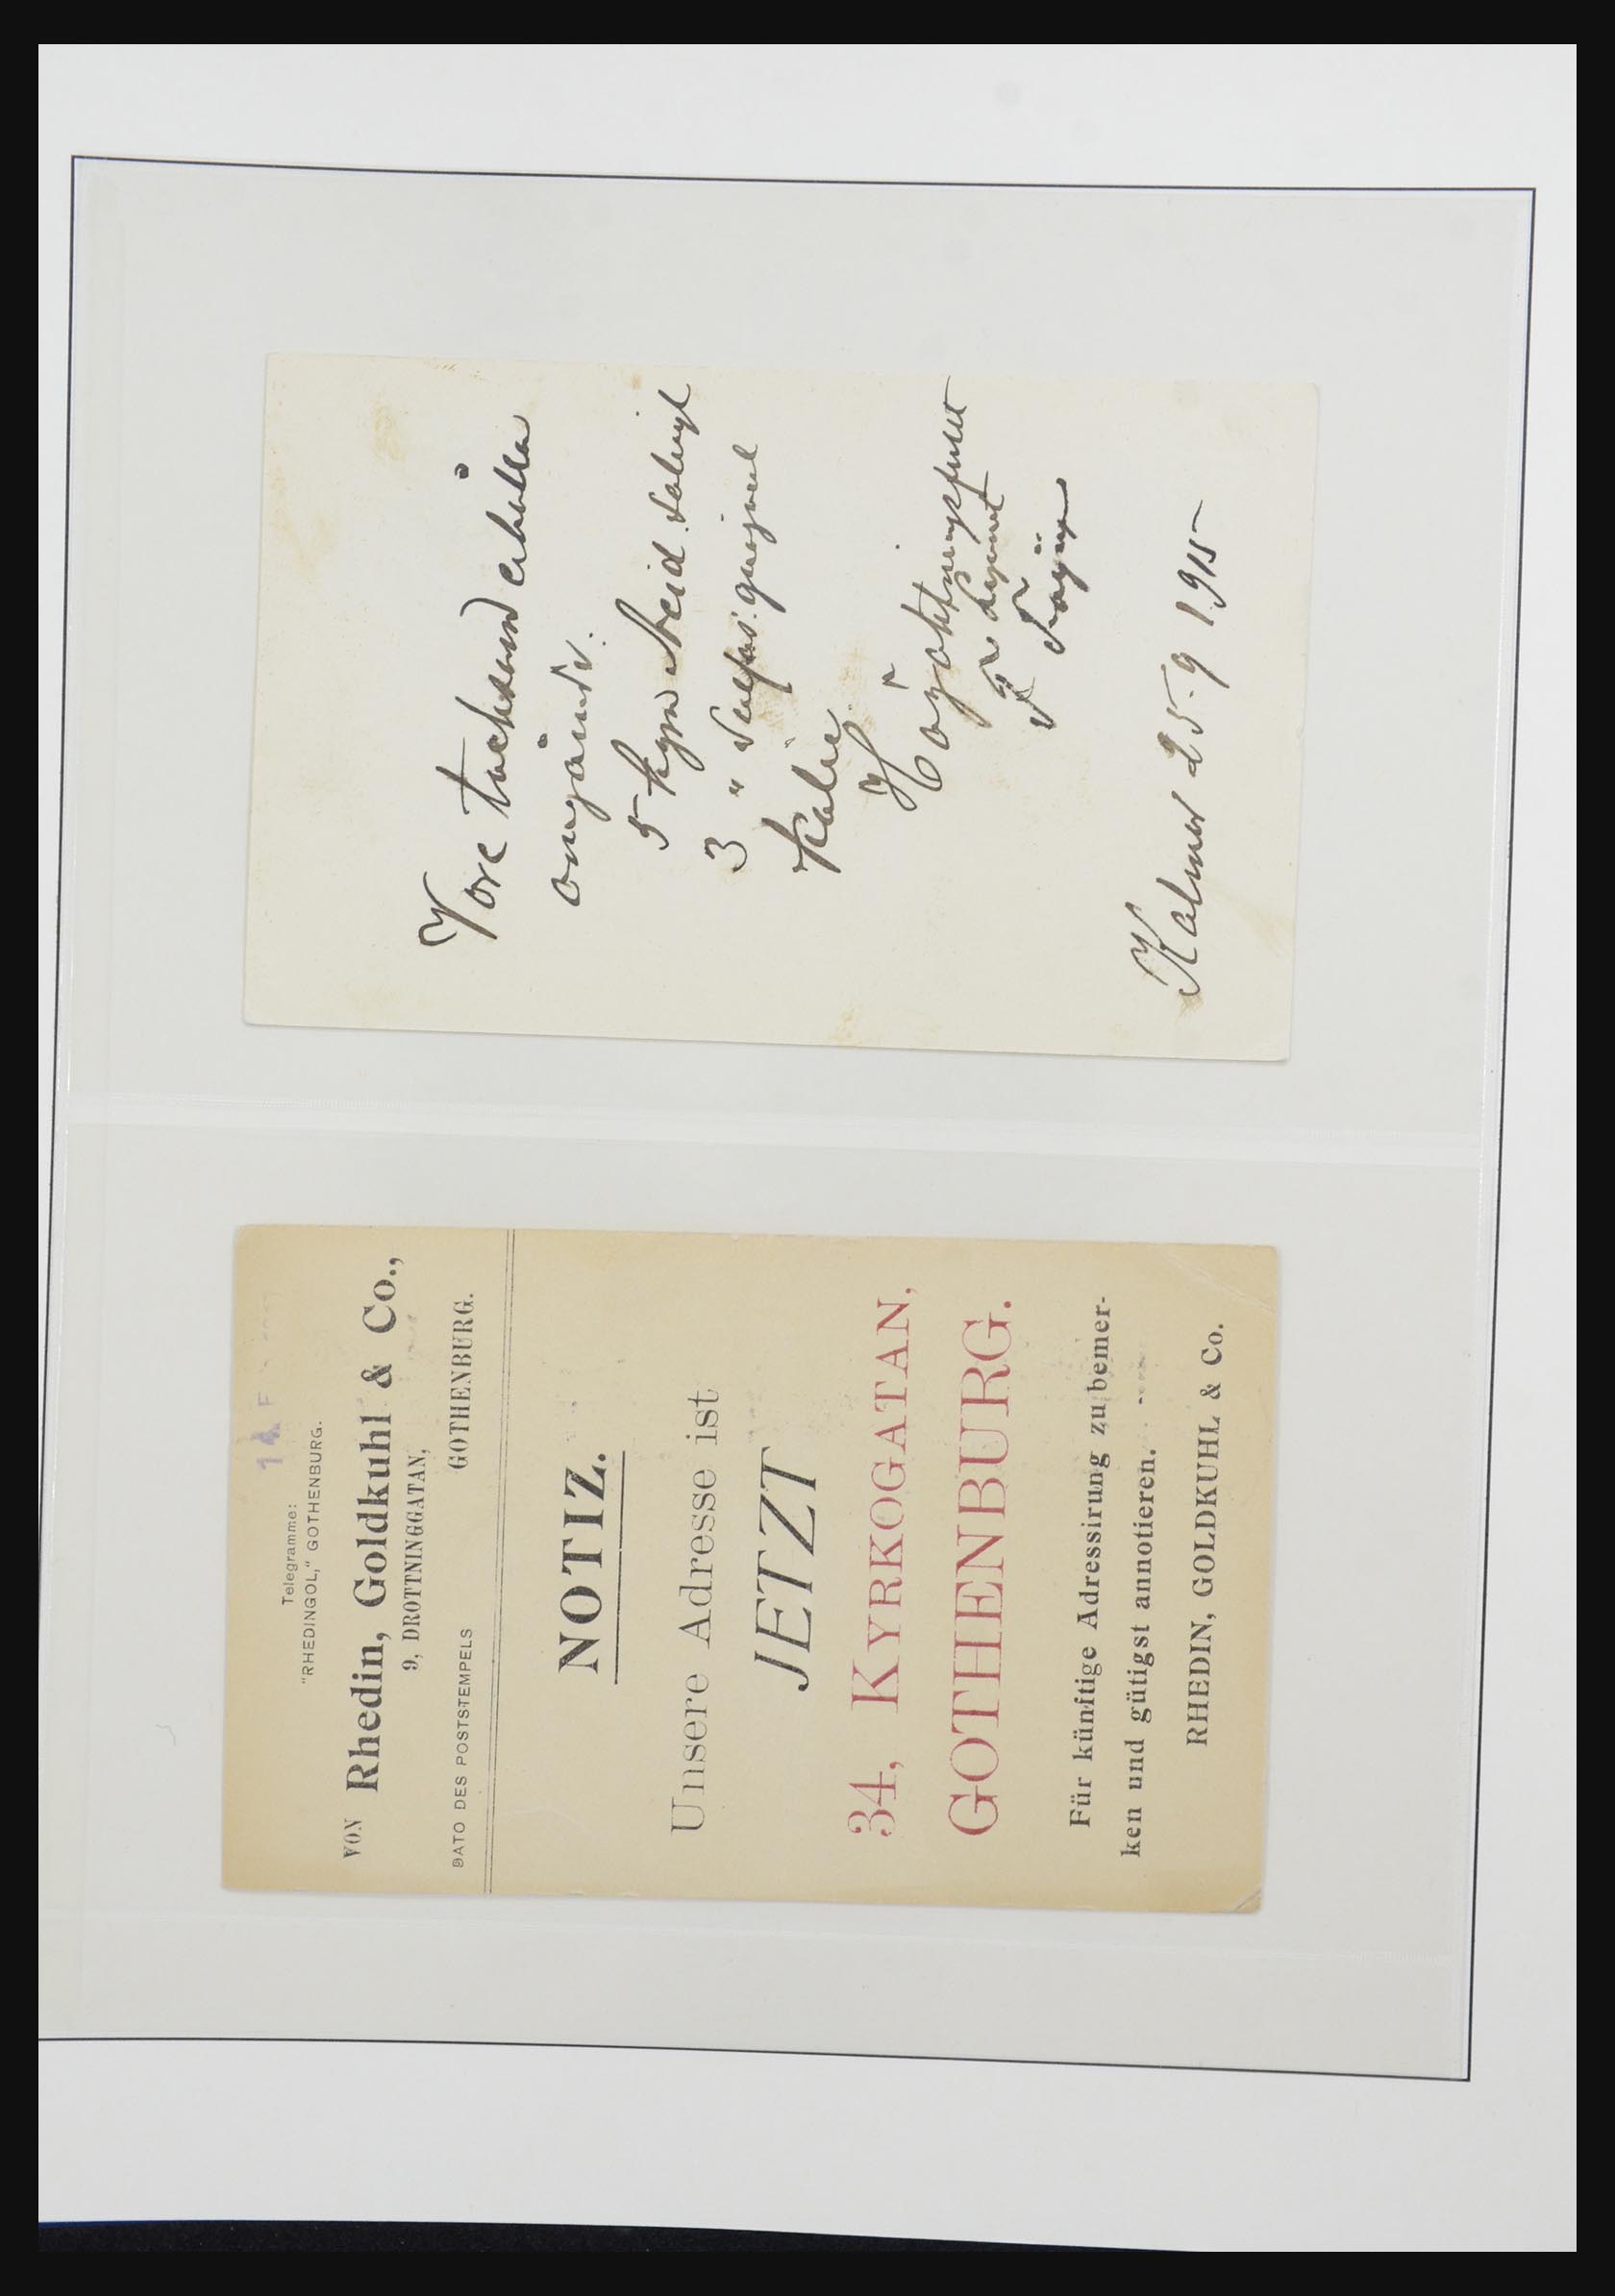 Vore tacksam erhålla
omgående.
5 kgm Acid.
3 "
Högaktningsfullt
Kalmar 25-9 1915
14 F
Telegramme:
"RHEDINGOL," GOTHENBURG.
VON Rhedin, Goldkuhl & Co.,
9, DROTTNINGGATAN,
DATO DES POSTSTEMPELS GOTHENBURG.
NOTIZ.
Unsere Adresse ist
JETZT
34, KYRKOGATAN,
GOTHENBURG.
Für künftige Adressirung zu bemer-
ken und gütigst annotieren.
RHEDIN, GOLDKUHL & Co.